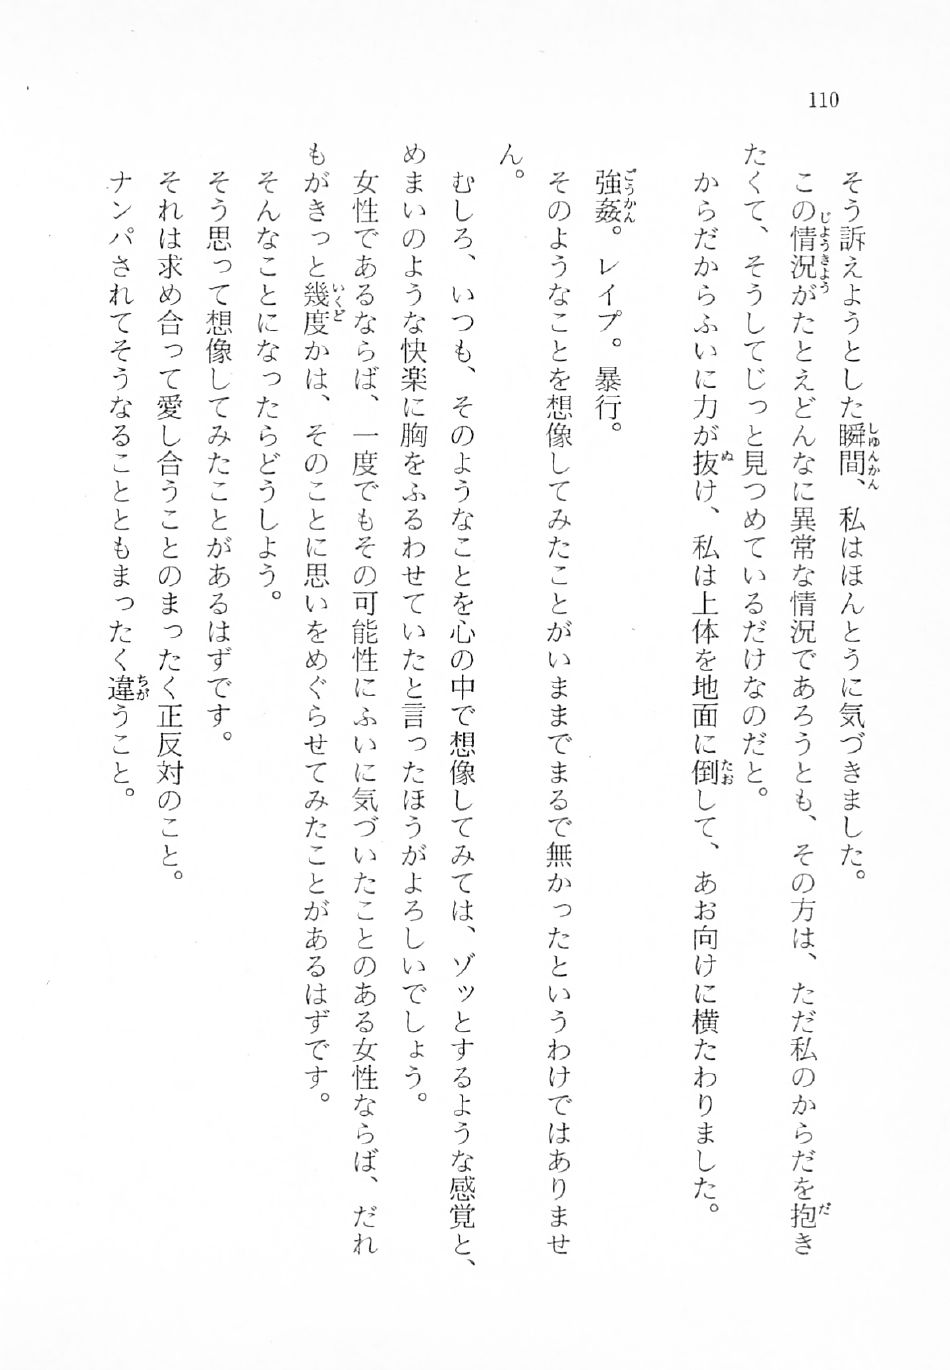 110
そう訴えようとした瞬間、私はほんとうに気づきました。
この情況がたとえどんなに異常な情況であろうとも、その方は、ただ私のからだを抱き
たくて、そうしてじっと見つめているだけなのだと。
からだからふいに力が抜け、私は上体を地面に倒して、あお向けに横たわりました。
強姦。レイプ。暴行。
そのようなことを想像してみたことがいままでまるで無かったというわけではありませ
ん。
むしろ、いつも、そのようなことを心の中で想像してみては、ゾッとするような感覚と、
めまいのような快楽に胸をふるわせていたと言ったほうがよろしいでしょう。
女性であるならば、一度でもその可能性にふいに気づいたことのある女性ならば、だれ
もがきっと幾度かは、そのことに思いをめぐらせてみたことがあるはずです。
そんなことになったらどうしよう。
そう思って想像してみたことがあるはずです。
それは求め合って愛し合うことのまったく正反対のこと。
ナンパされてそうなることともまったく違うこと。